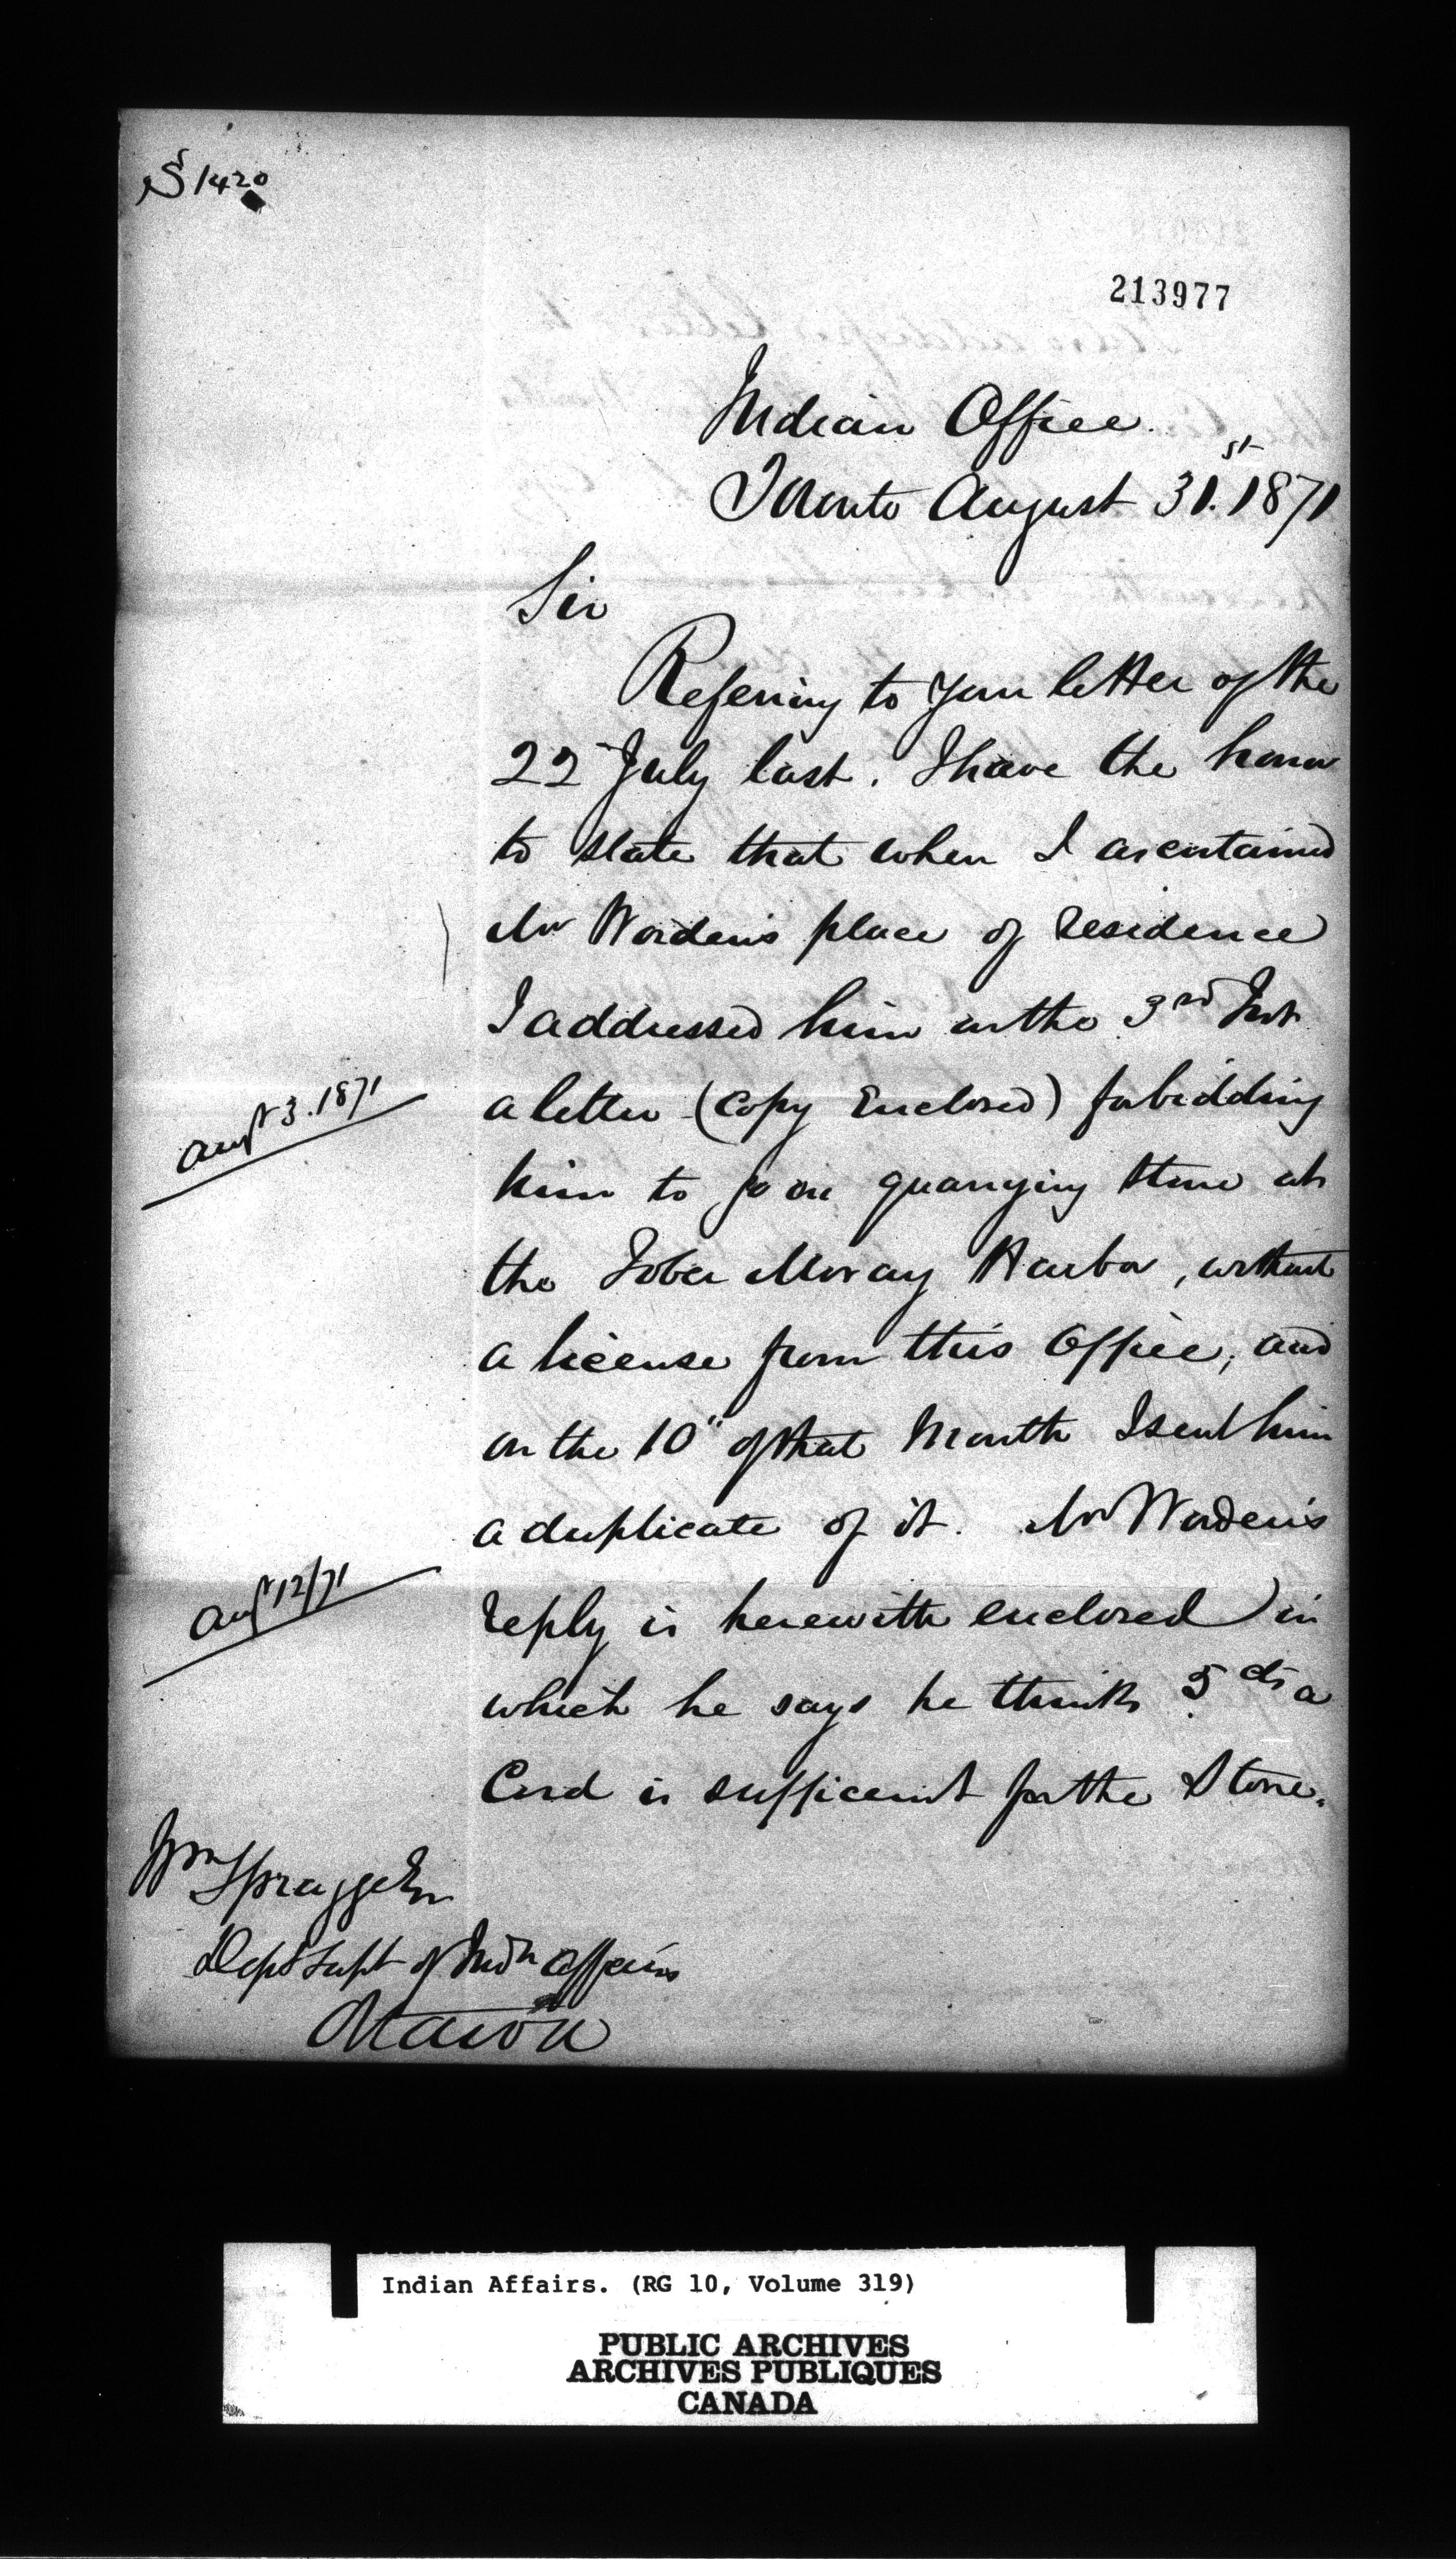 S 1420
213977
Indian Office.
Toronto August 31st. 1871
Sir
Referring to your letter of the
22 July last. I have the honor
to state that when I ascertained
Mr Worden's place of residence
I addressed him on the 3rd Inst
Augt 3. 1871
a letter (Copy Enclosed) forbidding
him to go on quarrying stone at
the Tober Moray Harbor, without
a license from this Office, and
on the 10" of that Month I sent him
a duplicate of it. Mr Worden's
Augt 12/71
reply is herewith enclosed in
which he says he thinks 5 cts a
Cord is sufficent for the Stone.
Wm Spragge Esr
Dept Supt of Indn Affairs
Ottawa
Indian Affairs. (RG 10, Volume 319)
PUBLIC ARCHIVES
ARCHIVES PUBLIQUES
CANADA